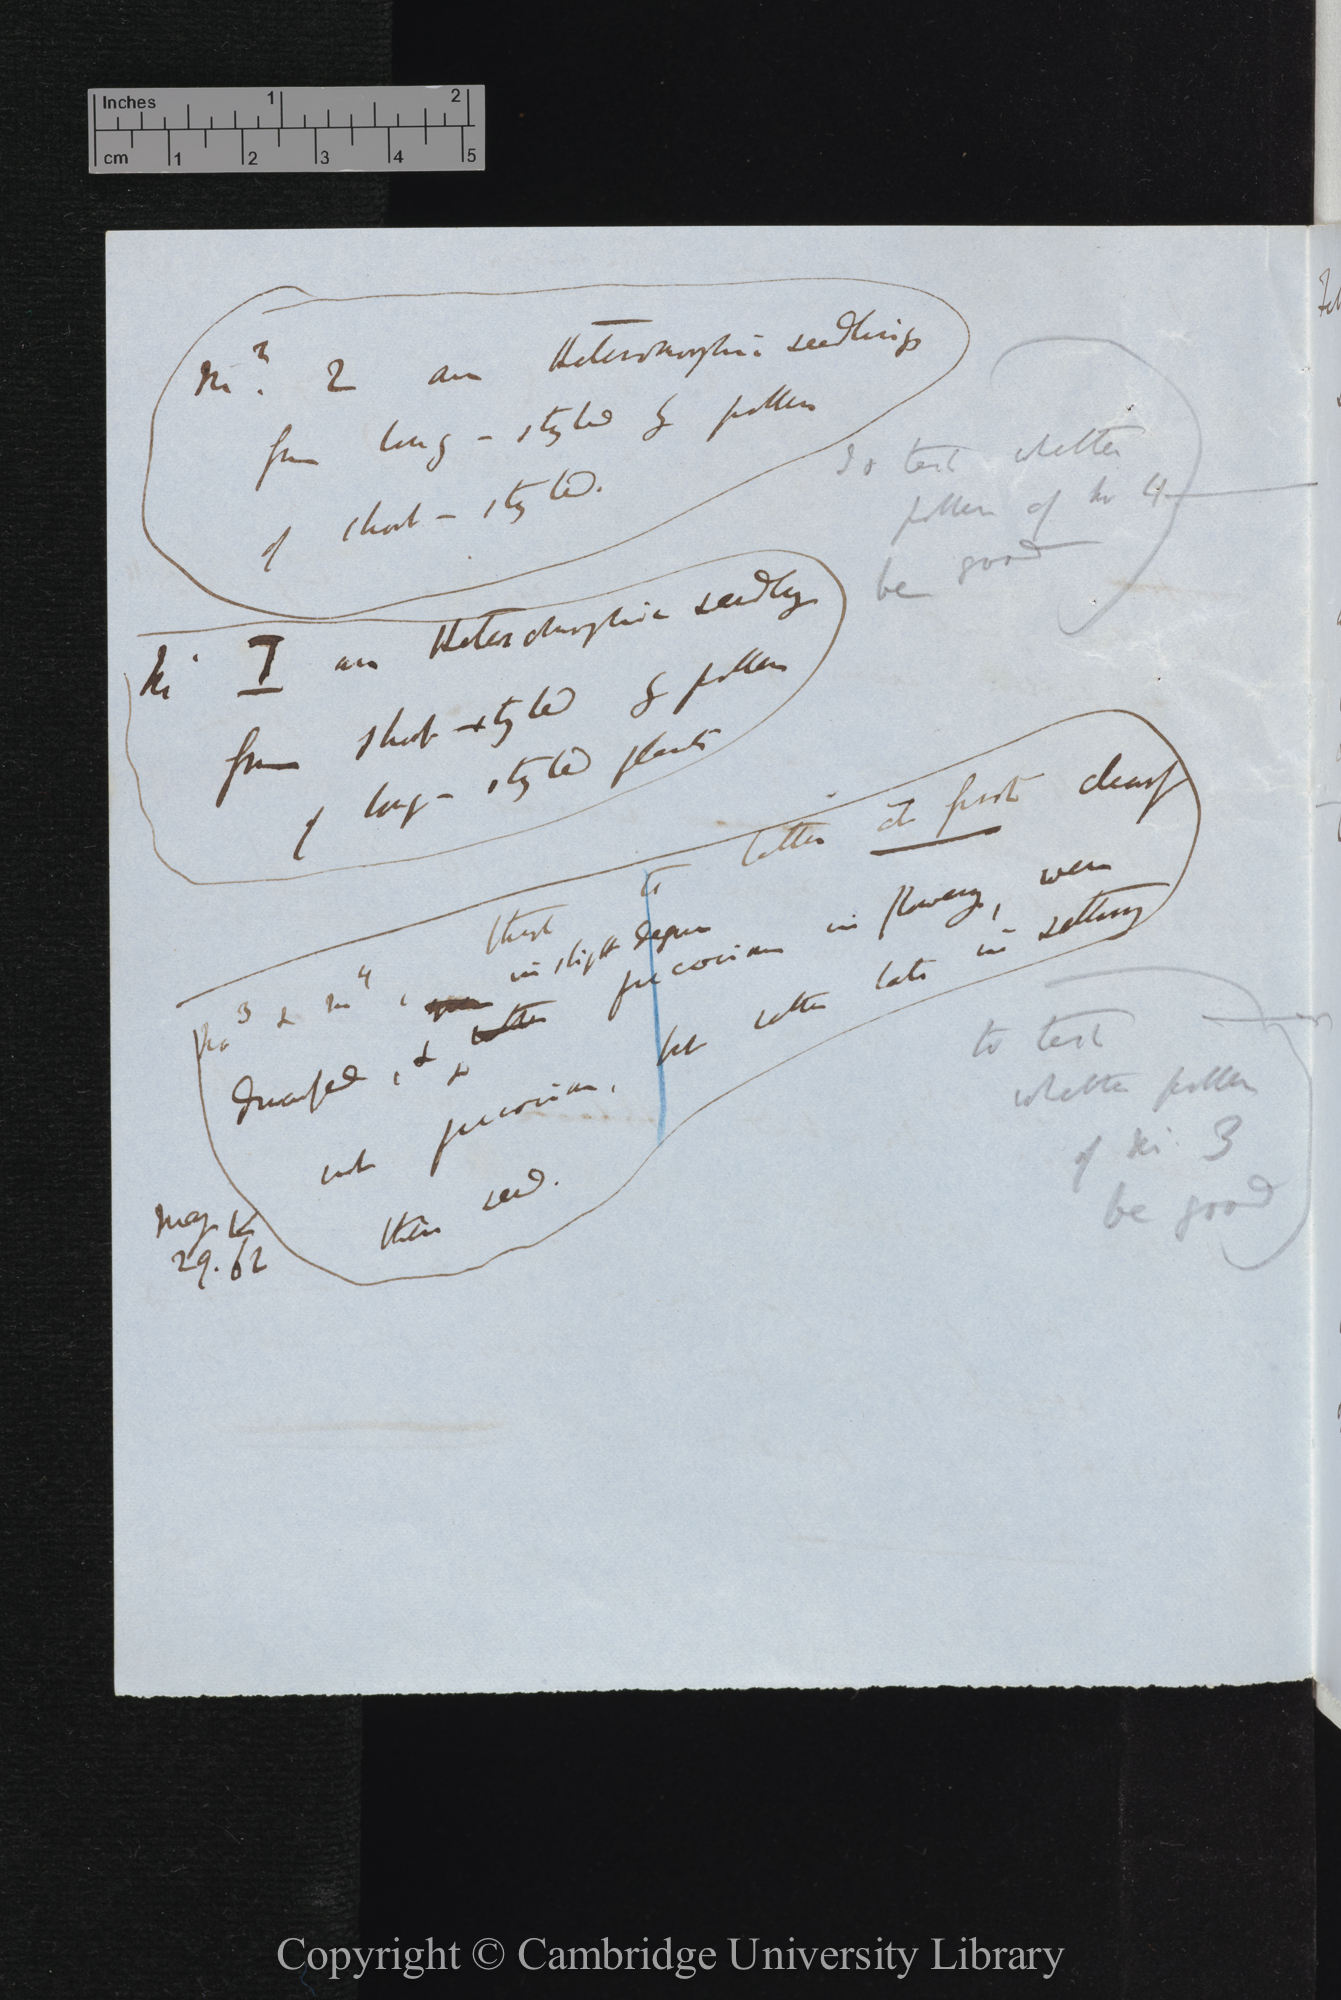 Inches 1 2
cm 1 2 3 4 5
No. 2 are Heteromorphic seedlings
from long-styled & pollen
of short-styled.
To test whether
pollen of No 4
be good
No I are Heteromorphic seedlings
from short-styled & pollen
of long-styled plants
latter at first dwarf
No 3 & No 4, in slight degree
dwarfed, & precocious in flowering, were
not precocious, but rather late in setting
their seed.
to test
whether pollen
of No. 3
be good
May
29. 62
Copyright © Cambridge University Library